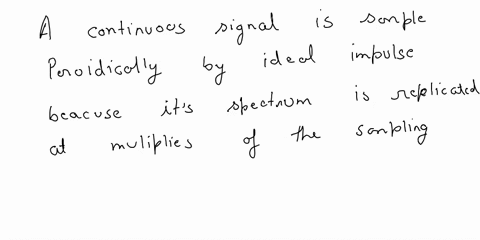 A continuous signal is sample
Peroidically by ideal impulse
beacuse it's spectrum is replicated
at muliplies of the sampling